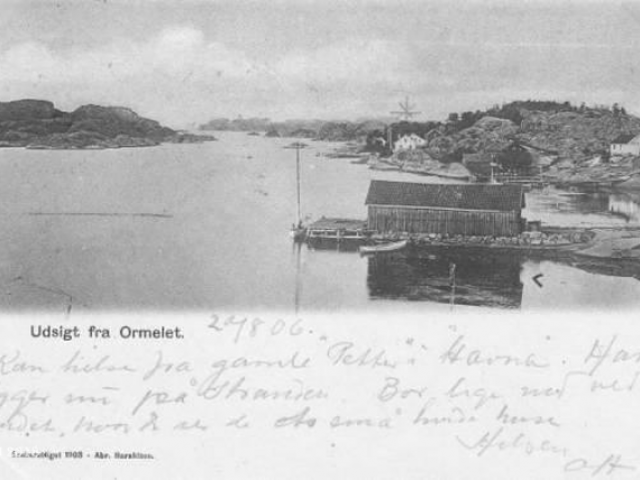 Udsigt fra Ormelet.
29/8 06.
Kan hilse fra gamle "Petter" i "Havna".
nu på Stranden. Bor lige ned ved
hvor De ser de to små hvide huse
Hilsen
Eneberettiget 1903 - Abr. Haraldsen.